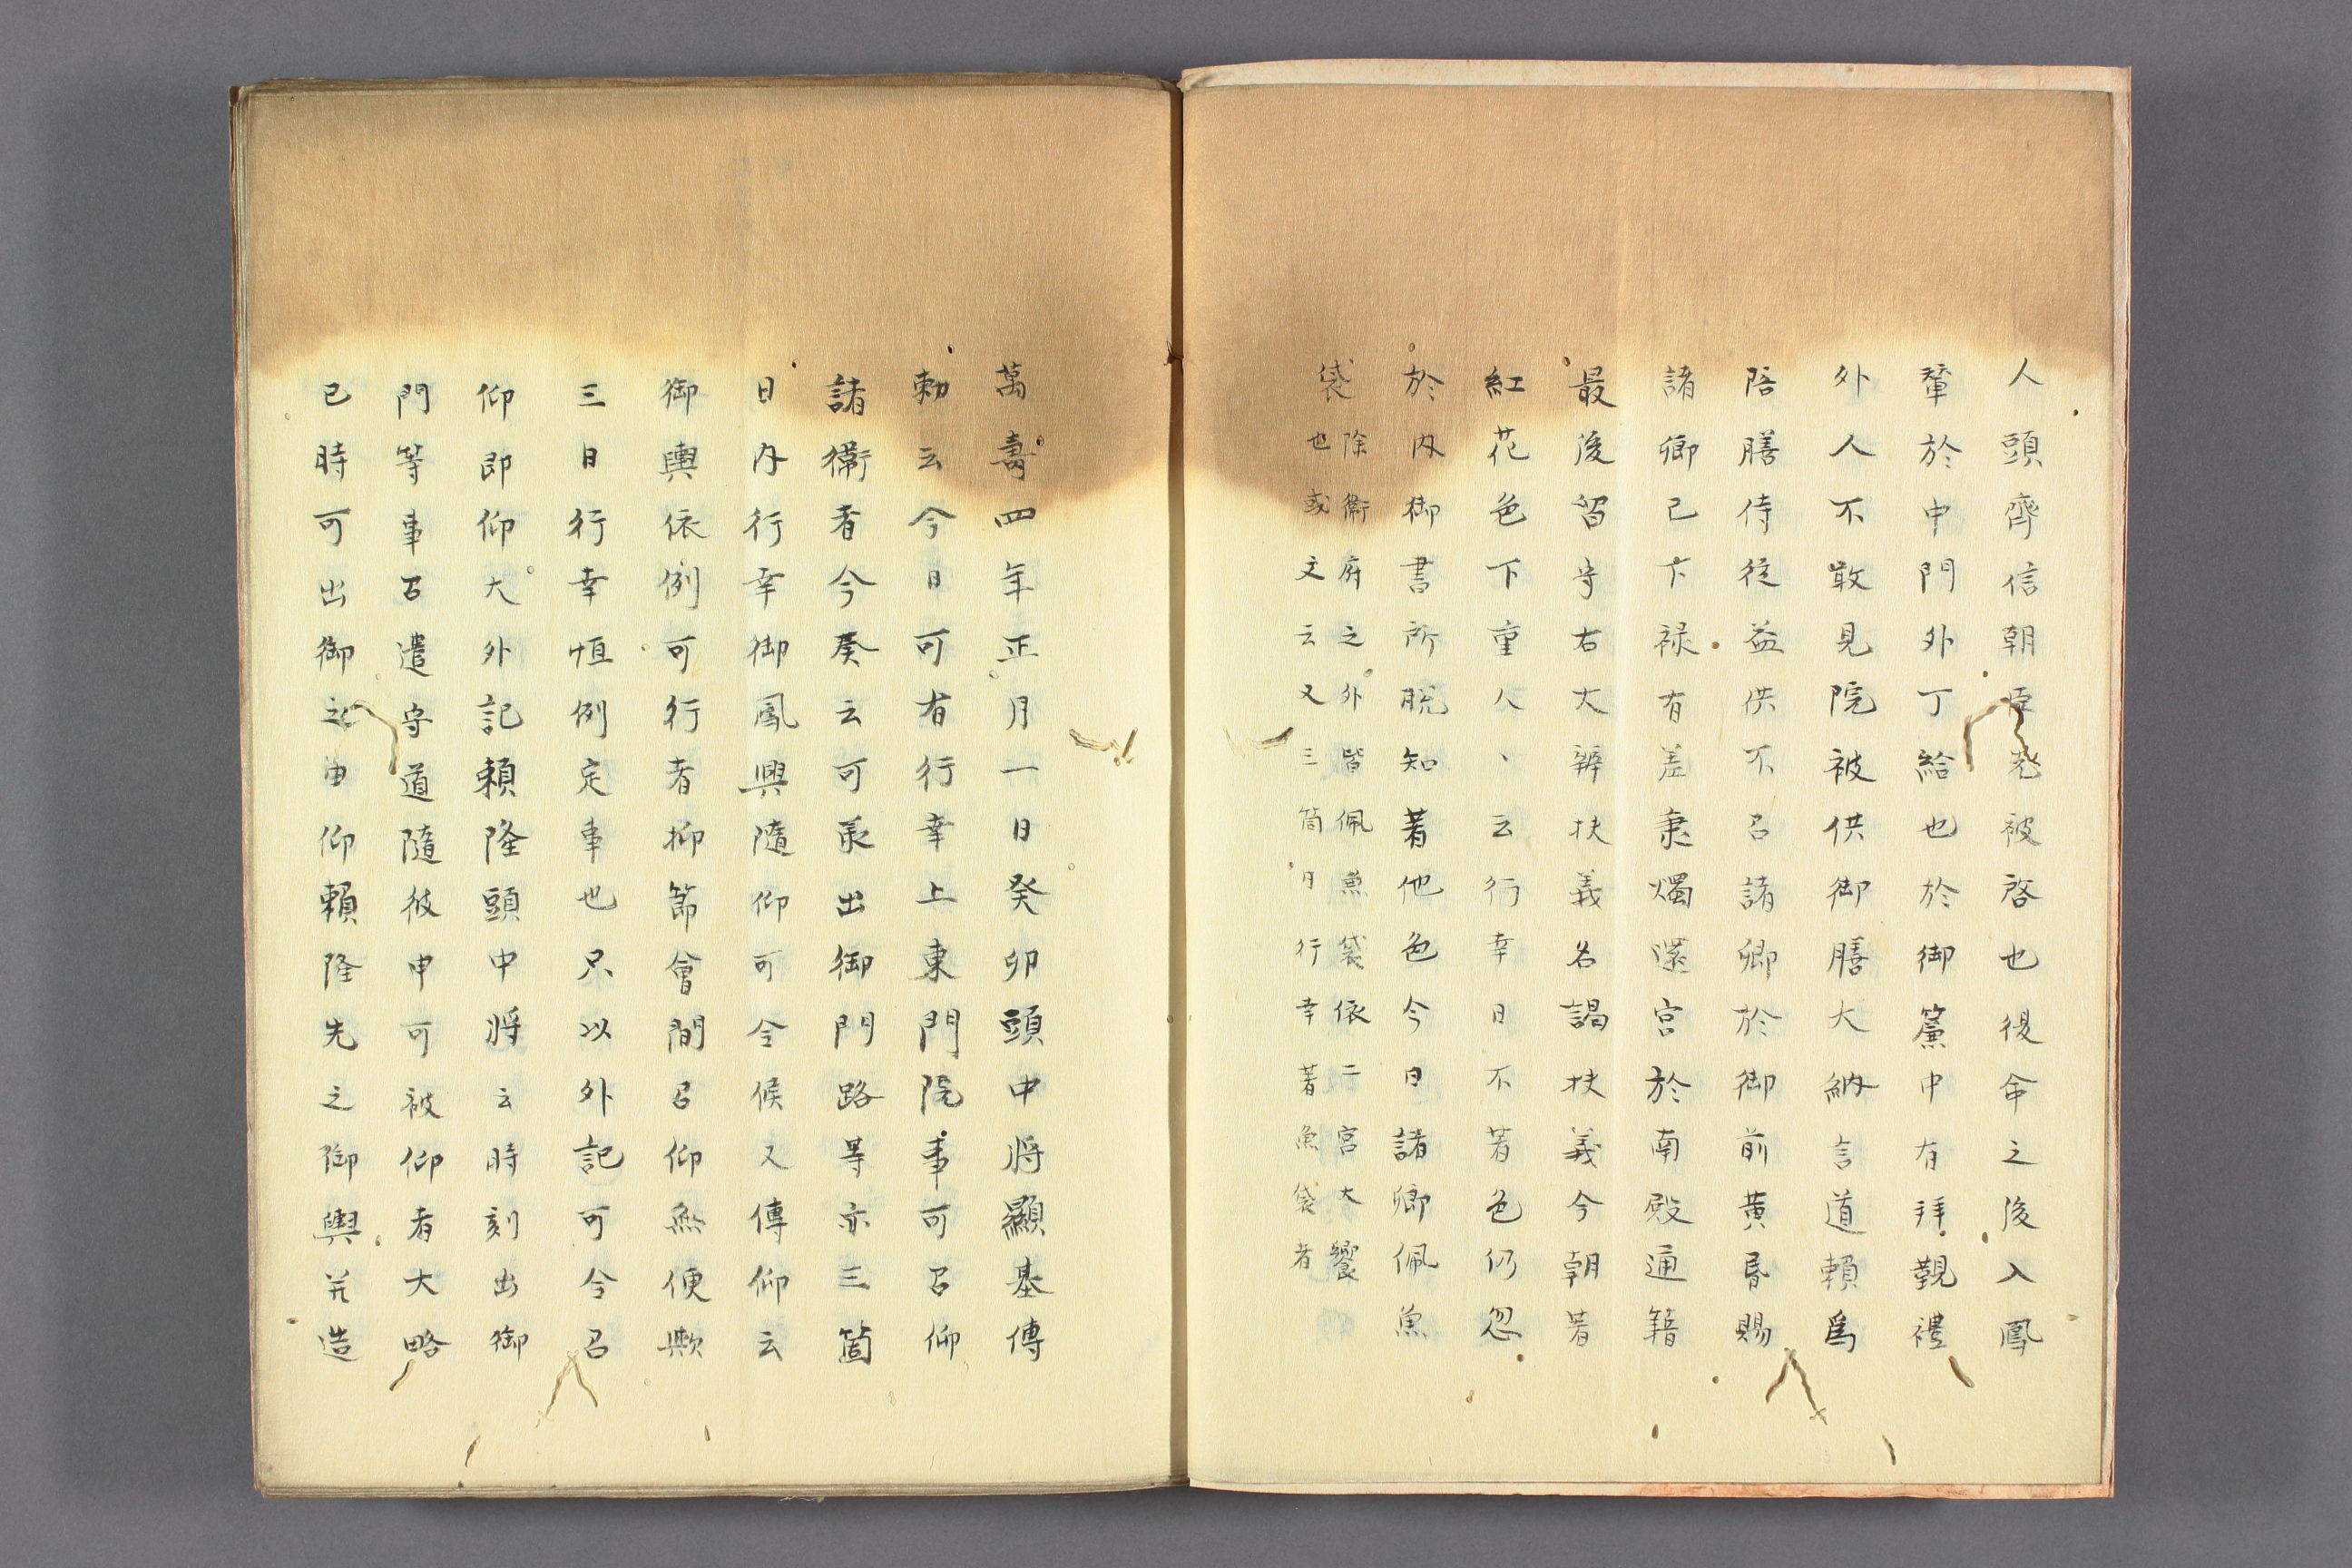 人頭齊信朝臣被啓也復命之後入鳳
輦於中門外丁給也於御簾中有拜覲禮
外人不敢見院被供御膳大納言道賴爲
陪膳侍從益供不召諸卿於御前黄昏賜
諸卿已下禄有差秉燭還宮於南殿通籍
最後留守右大辨扶義名謁扶義今朝著
紅花色下重人、云行幸日不著色仍忽
於内御書所脱知著他色今日諸卿佩魚
袋除衛府之外皆佩魚袋依二宮大饗
也或文云又三箇日行幸著魚袋者
萬壽四年正月一日癸卯頭中將顯基傳
勅云今日可有行幸上東門院事可召仰
諸衛者今癸云可承出御門路等亦三箇
日内行幸御鳳輿隨仰可令候又傳仰云
御輿依例可行者抑節會間召仰無便歟
三日行幸恒例定事也只以外記可令召
仰即仰大外記賴隆頭中將云時刻出御
門等事召遣守道隨彼申可被仰者大略
已時可出御之由仰賴隆先之御輿并造